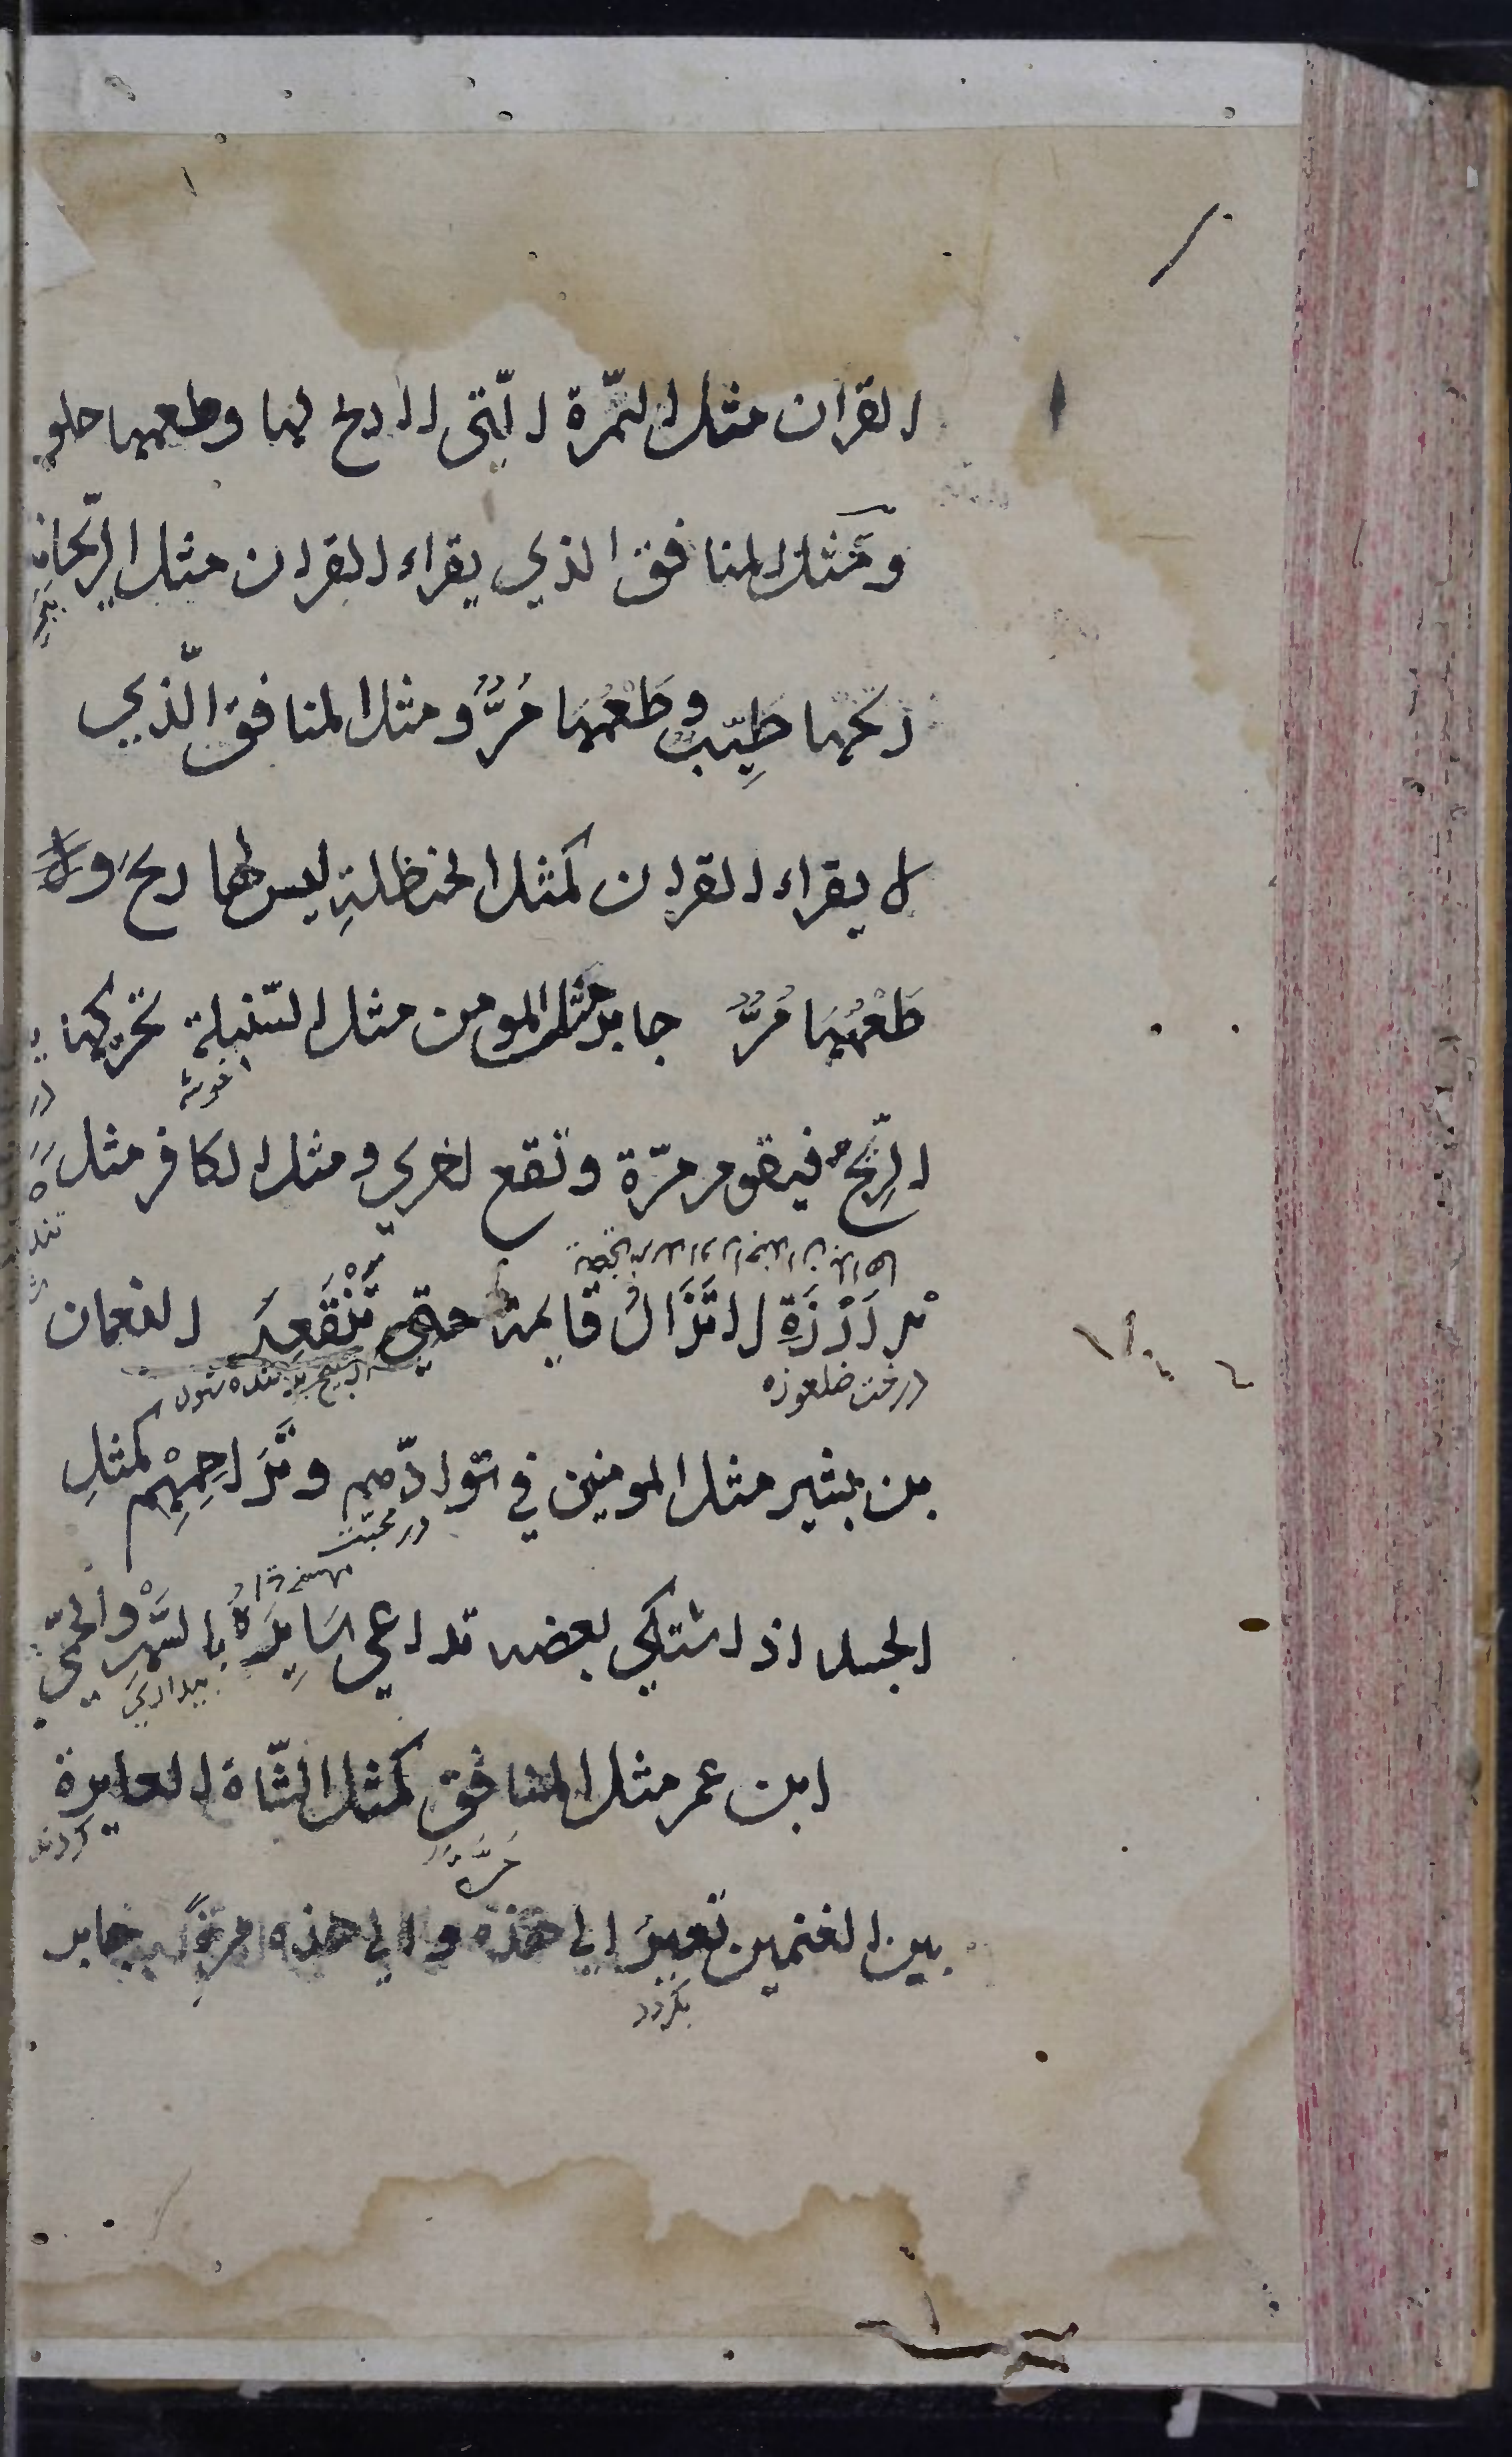 القران مثل التمّرة الّتى لا ريح لها وطعمها حلو
ومَثل المنافق الذي يقراء القران مثل الرّيحانة
ريحها طِيّب وطَعْمُها مُرٌّ ومثل المنافق الّذي
لا يقراء القران كمثل الحنظلةِ ليس لها ريح ولا
طَعْمُها مُرٌّ جابر مَثل المومن مثل السّنبلة تحرّكها
خوشه
الرِّيحُ فيقوم مرّة وتقع اخري ومثل الكافر مثل
اَرْزَةِ لا تَزَالُ قايمة حتي تَنْقَعِرَ النعمان
درخت ضلعوزه
بن بشير مثل المومنين في توادّهم وتَرَاحِمِهْم كمثلِ
در محبّت
الجسد اذا اشتكي بعضه تداعي سَايِرُهُ بالسَّهَرِ والحمّي
بيداري
ابن عمر مثل المنافق كمثل الشّاة العايرة
مَرَّةً
بين الغنمين تعيرُ الي هذه والي هذه مرةً جابر
بكردد